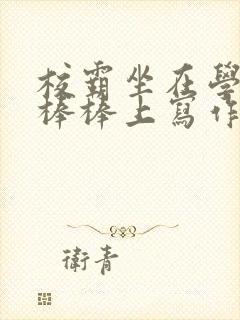 校霸坐在學
棒棒上寫作
衛青